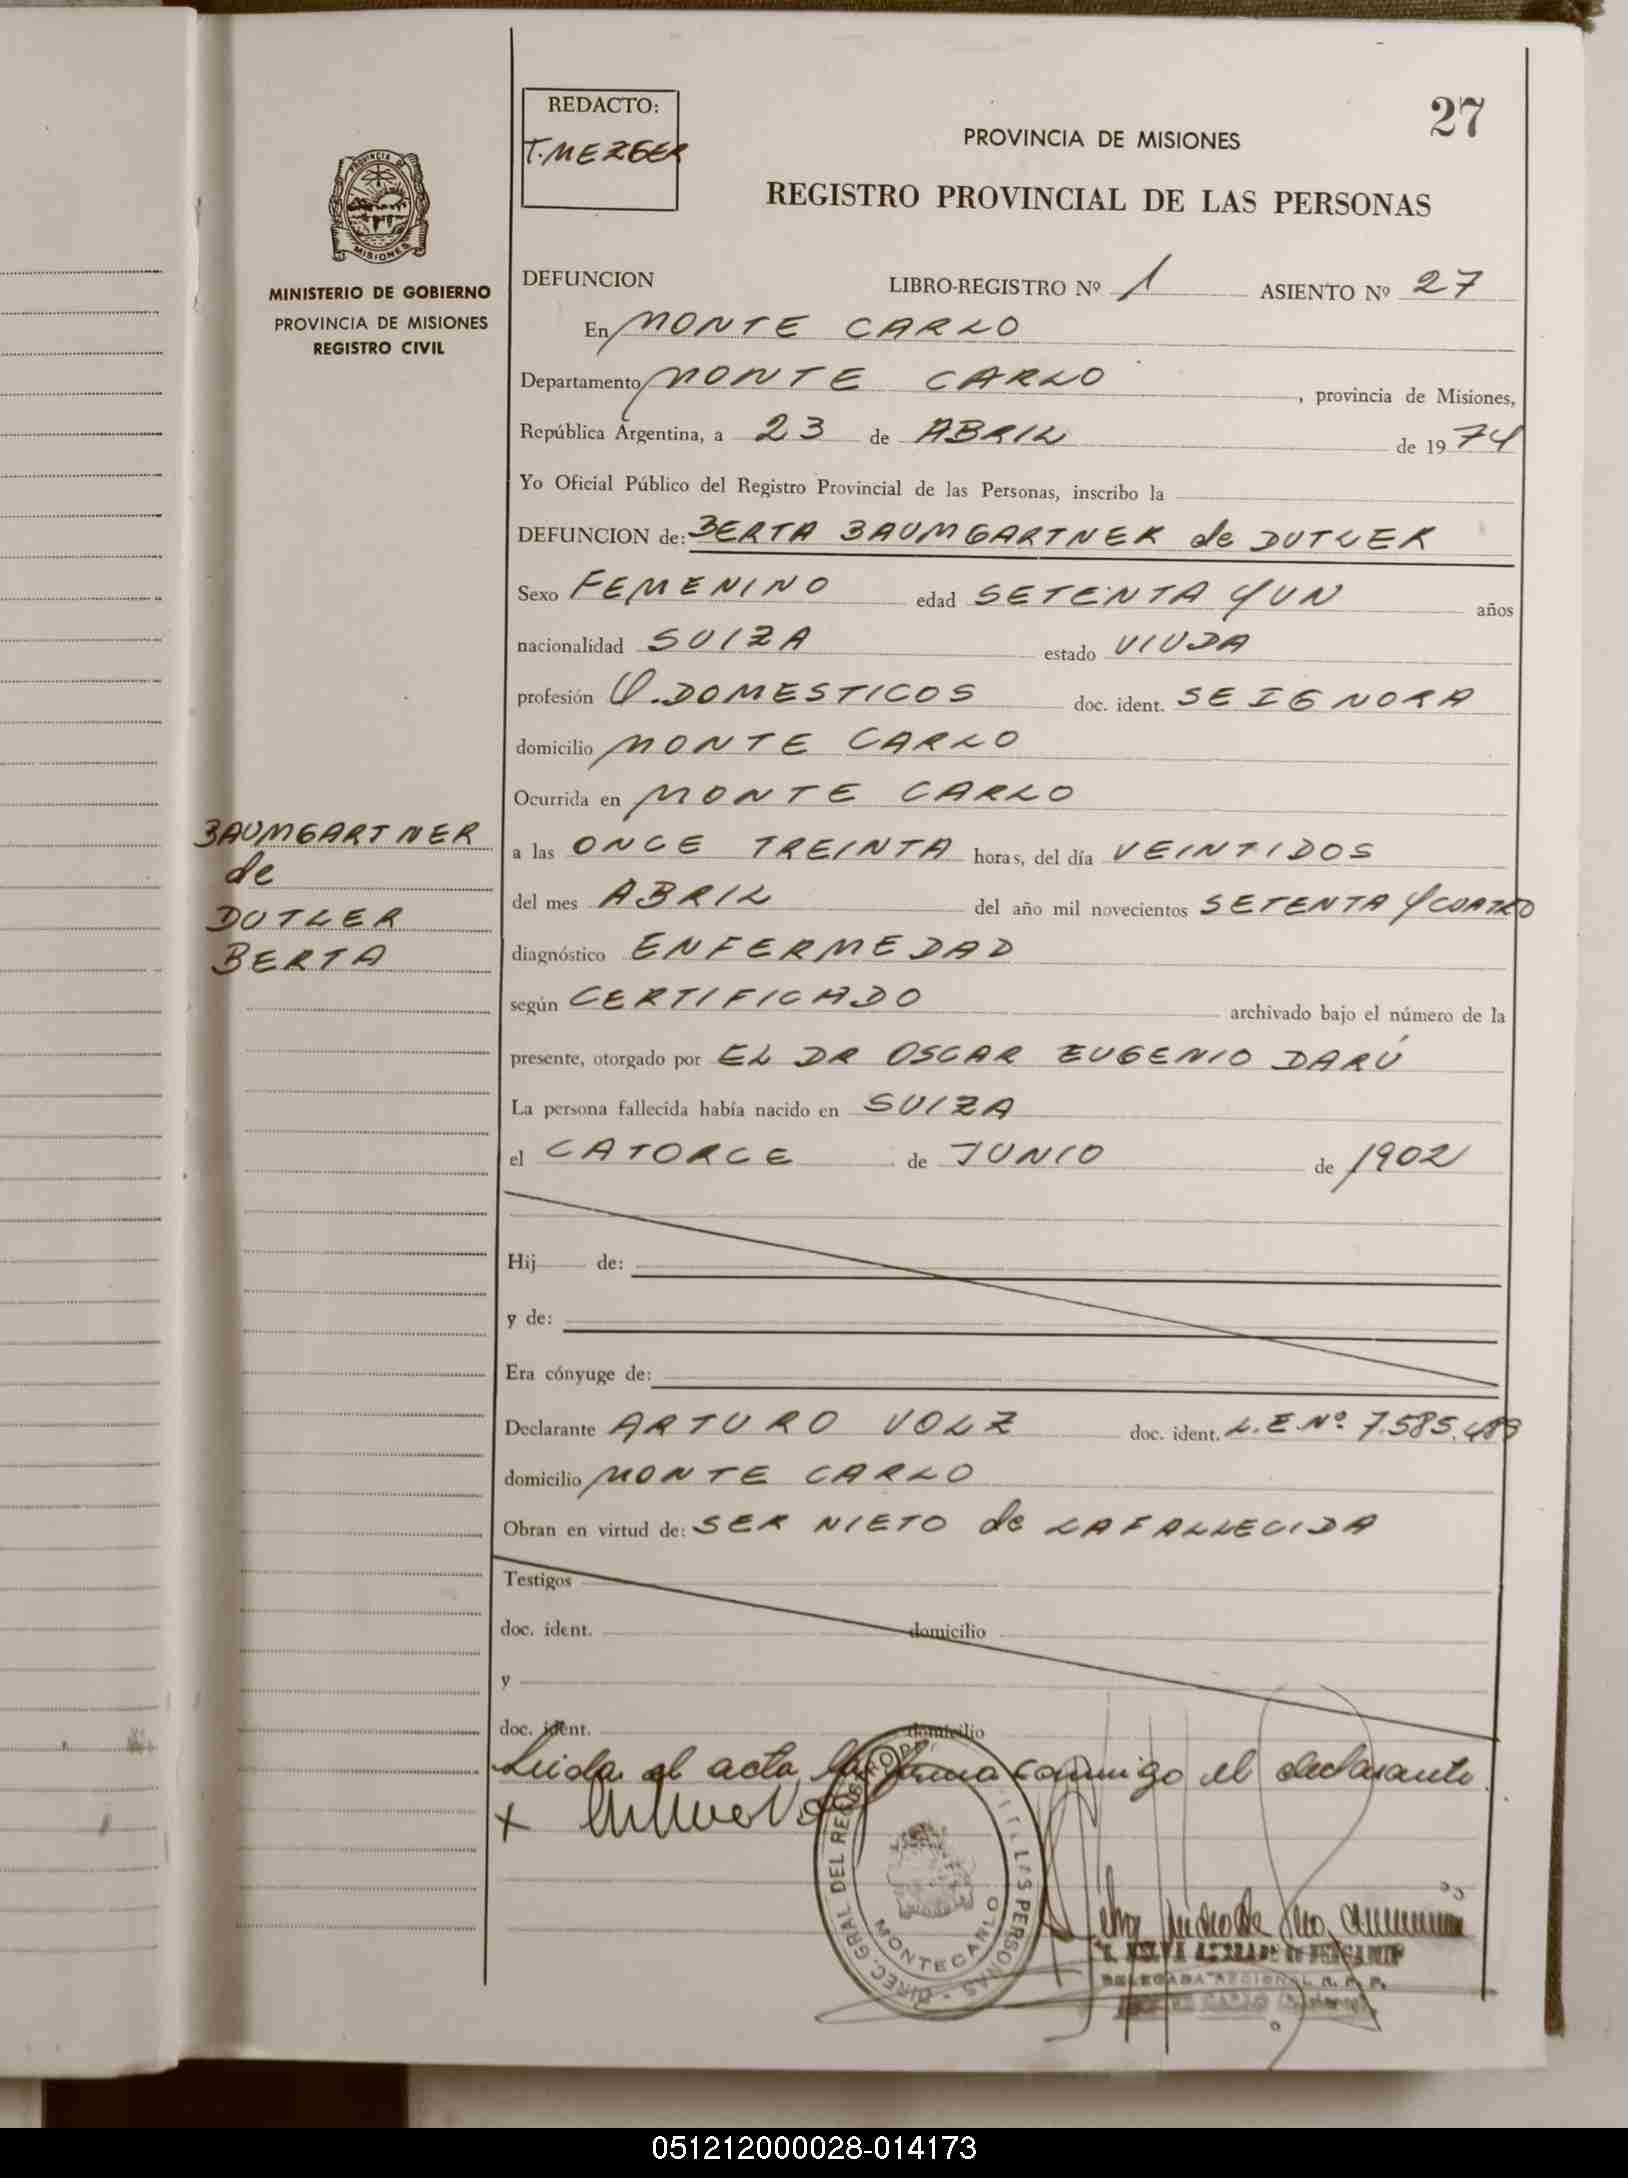 27
REDACTO:
T. MEZGER
PROVINCIA DE MISIONES
REGISTRO PROVINCIAL DE LAS PERSONAS
PROVINCIA DE
MISIONES
MINISTERIO DE GOBIERNO
PROVINCIA DE MISIONES
REGISTRO CIVIL
DEFUNCION LIBRO-REGISTRO Nº 1 ASIENTO Nº 27
En MONTE CARLO
Departamento MONTE CARLO, provincia de Misiones,
República Argentina, a 23 de ABRIL de 1974
Yo Oficial Público del Registro Provincial de las Personas, inscribo la
DEFUNCION de: BERTA BAUMGARTNER de DUTLER
Sexo FEMENINO edad SETENTA Y UN años
nacionalidad SUIZA estado VIUDA
profesión Q. DOMESTICOS doc. ident. SE IGNORA
domicilio MONTE CARLO
Ocurrida en MONTE CARLO
a las ONCE TREINTA horas, del día VEINTIDOS
del mes ABRIL del año mil novecientos SETENTA Y CUATRO
diagnóstico ENFERMEDAD
según CERTIFICADO archivado bajo el número de la
presente, otorgado por EL DR OSCAR EUGENIO DARÚ
La persona fallecida había nacido en SUIZA
el CATORCE de JUNIO de 1902
BAUMGARTNER
de
DUTLER
BERTA
Hij de:
y de:
Era cónyuge de:
Declarante ARTURO VOLZ doc. ident. L.E.Nº. 7.585.489
domicilio MONTE CARLO
Obran en virtud de: SER NIETO de LA FALLECIDA
Testigos
doc. ident. domicilio
y
doc. ident. domicilio
Leida el acta, la firma conmigo el declarante.
X
DIREC. GRAL. DEL REGISTRO PERSONAS
MONTECARLO
DELEGADA REGIONAL R. P. P.
051212000028-014173